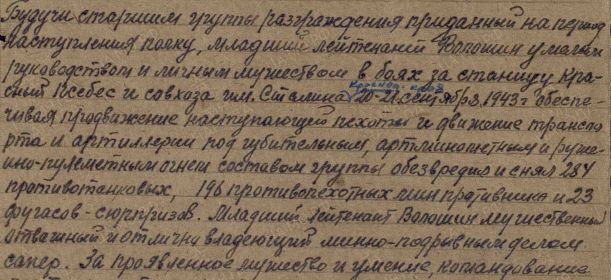 Будучи старшим группы разграждения приданный на период
наступления полку, младший лейтенант Волошин умелым
руководством и личным мужеством в боях за станицу Кра-
сный Псебес и совхоза им. Сталина 20-21 сентября 1943 г обеспе-
чивая продвижение наступающей пехоты и движение транспо
рта и артиллерии под губительным, артминометным и руже-
йно-пулеметным огнем составом группы обезвредил и снял 284
противотанковых, 196 противопехотных мин противника и 23
фугасов-сюрпризов. Младший лейтенант Волошин мужественный
отважный и отлично владеющий минно-подрывным делом
сапер. За проявленное мужество и умение командование